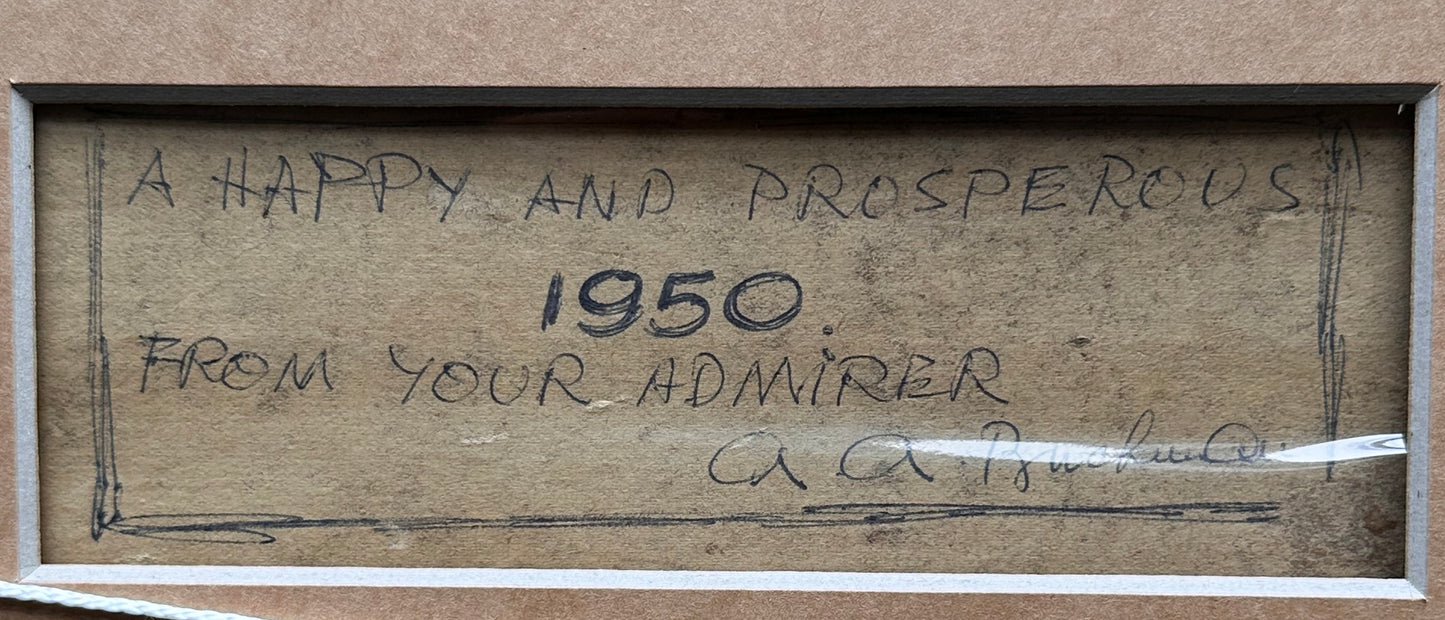 A HAPPY AND PROSPEROUS
1950.
FROM YOUR ADMIRER
A A